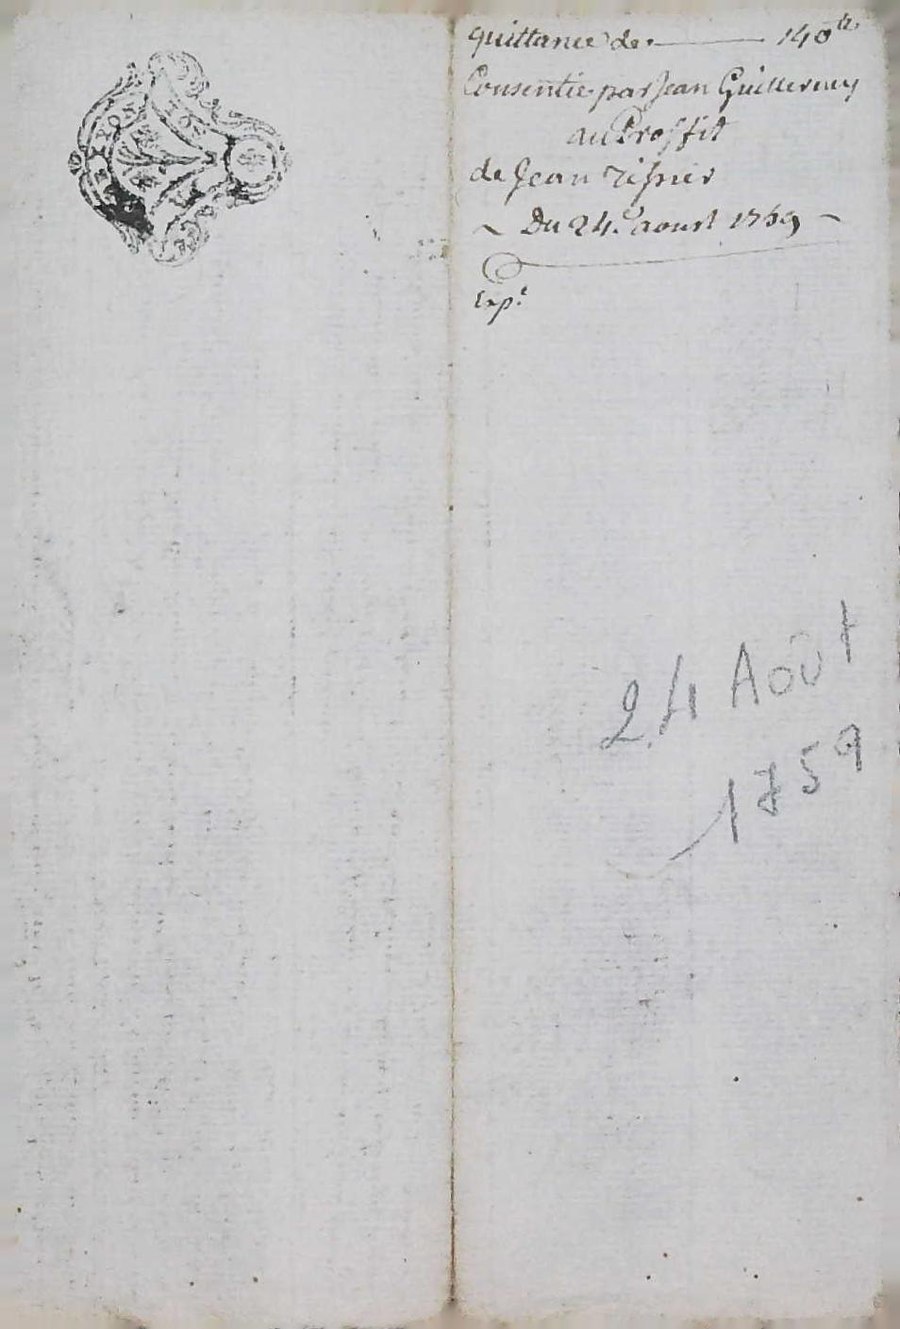 quittance de 140ᵗᵗ
Consentie par Jean Guillermy
au Proffit
de Jean
Du 24.ᵉ aoust 1759
Exp.ᵉ
24 Août
1759